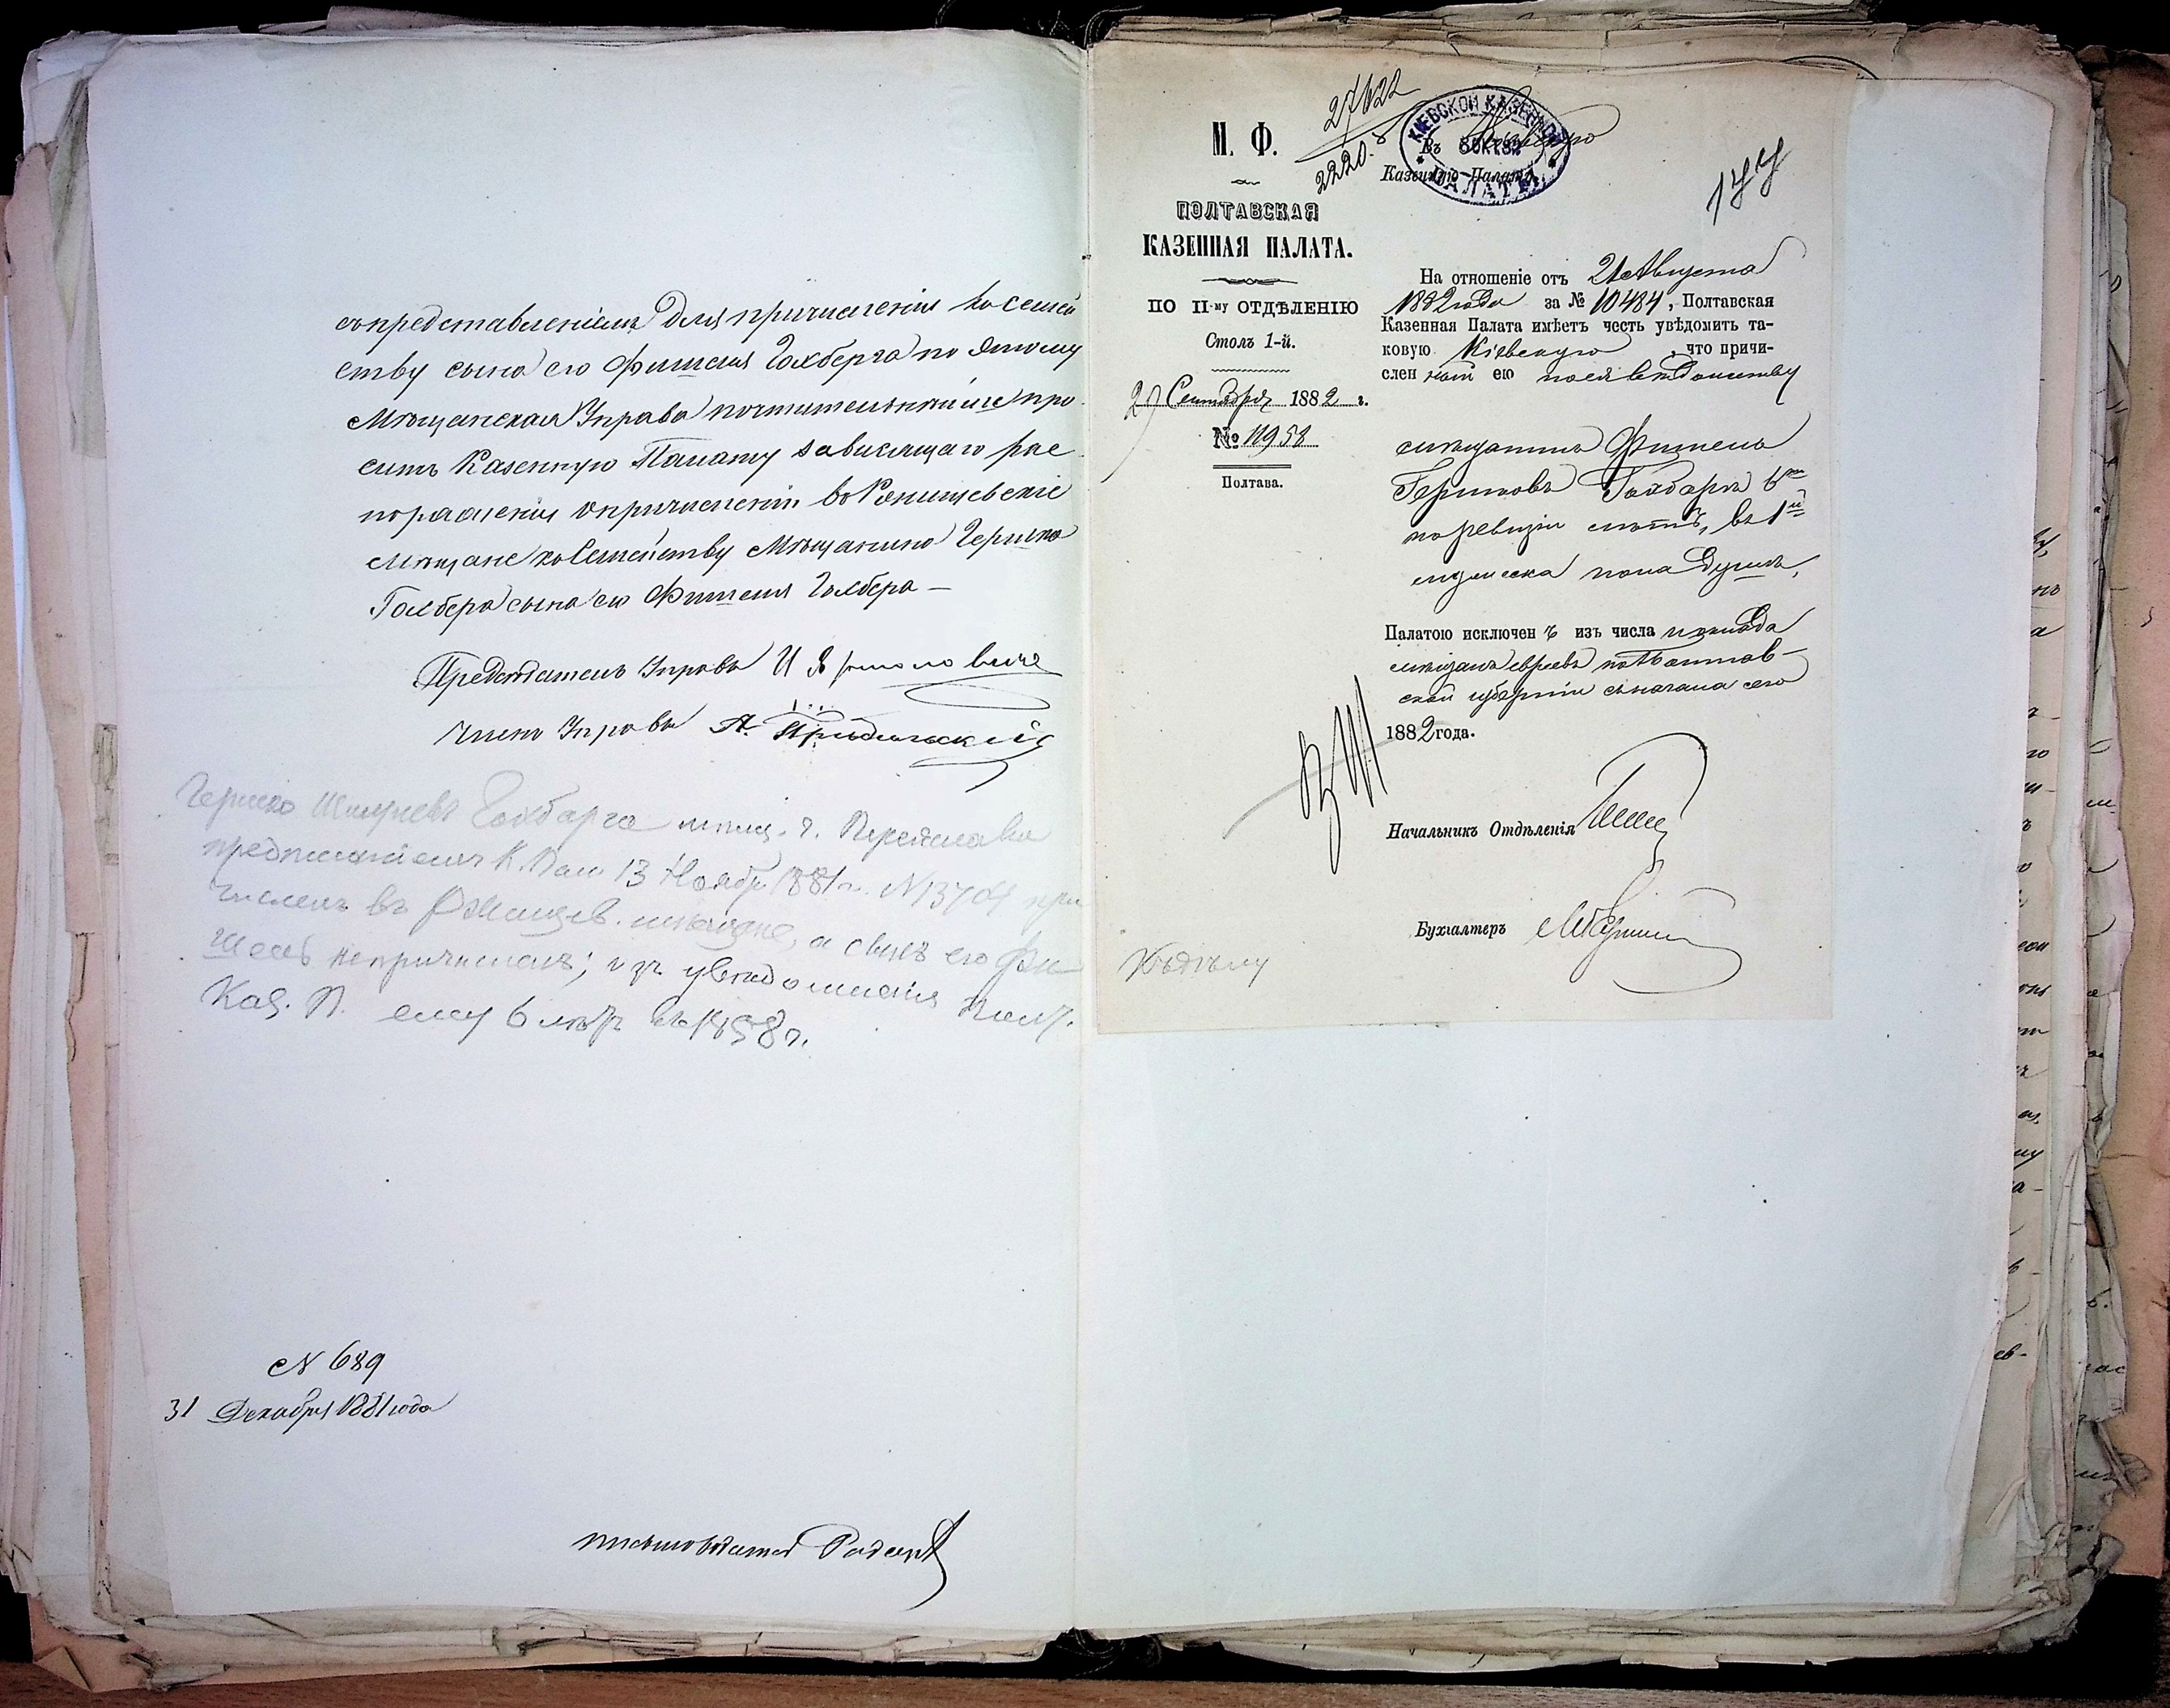 съ представленіемъ для причисленія къ семей
ству сына его Фишеля Гохберга по этому
Мѣщанская Управа почтительнѣйше про
ситъ Казенную Палату зависящаго рас
поряженія о причисленіи въ Ржищевскіе
мѣщане къ семейству мѣщанина Гершка
Гохберга сына его Фишеля Гохберга —
Председатель Управы И
Членъ Управы А.
Гершко Гохбарга мѣщ. г. Переяслава
предписаніемъ К. Пал 13 Ноябр 1881 г. № 13704 при
численъ въ Ржищев. мѣщане, а сынъ его Фи
шель не причисленъ; изъ увѣдомленія Полт.
Каз. П. ему 6 лѣтъ въ 1858 г.
№ 689
31 Декабря 1881 года
письмоводитель
27622
2220.
М. Ф.
ПОЛТАВСКАЯ
КАЗЕННАЯ ПАЛАТА.
ПО II-му ОТДѢЛЕНІЮ
Столъ 1-й.
29 Сентября 1882 г.
№ 11958
Полтава.
КІЕВСКОЙ КАЗЕННОЙ
8 ОКТ 82
ПАЛАТЫ
Въ Кіевскую
Казенную Палату.
177
На отношеніе отъ 21 Августа
1882 года за № 10484, Полтавская
Казенная Палата имѣетъ честь увѣдомить та-
ковую Кіевскую, что причи-
слен ный ею по ея вѣдомству
мѣщанинъ Фишель
Гершковъ Гохбаргъ 6ти
по ревизіи лѣтъ, въ 1й
Палатою исключен ъ изъ числа оклада
мѣщанъ евреевъ по Полтав-
ской губерніи съ начала сего
1882 года.
Начальникъ Отдѣленія
Бухгалтеръ
Къ дѣлу